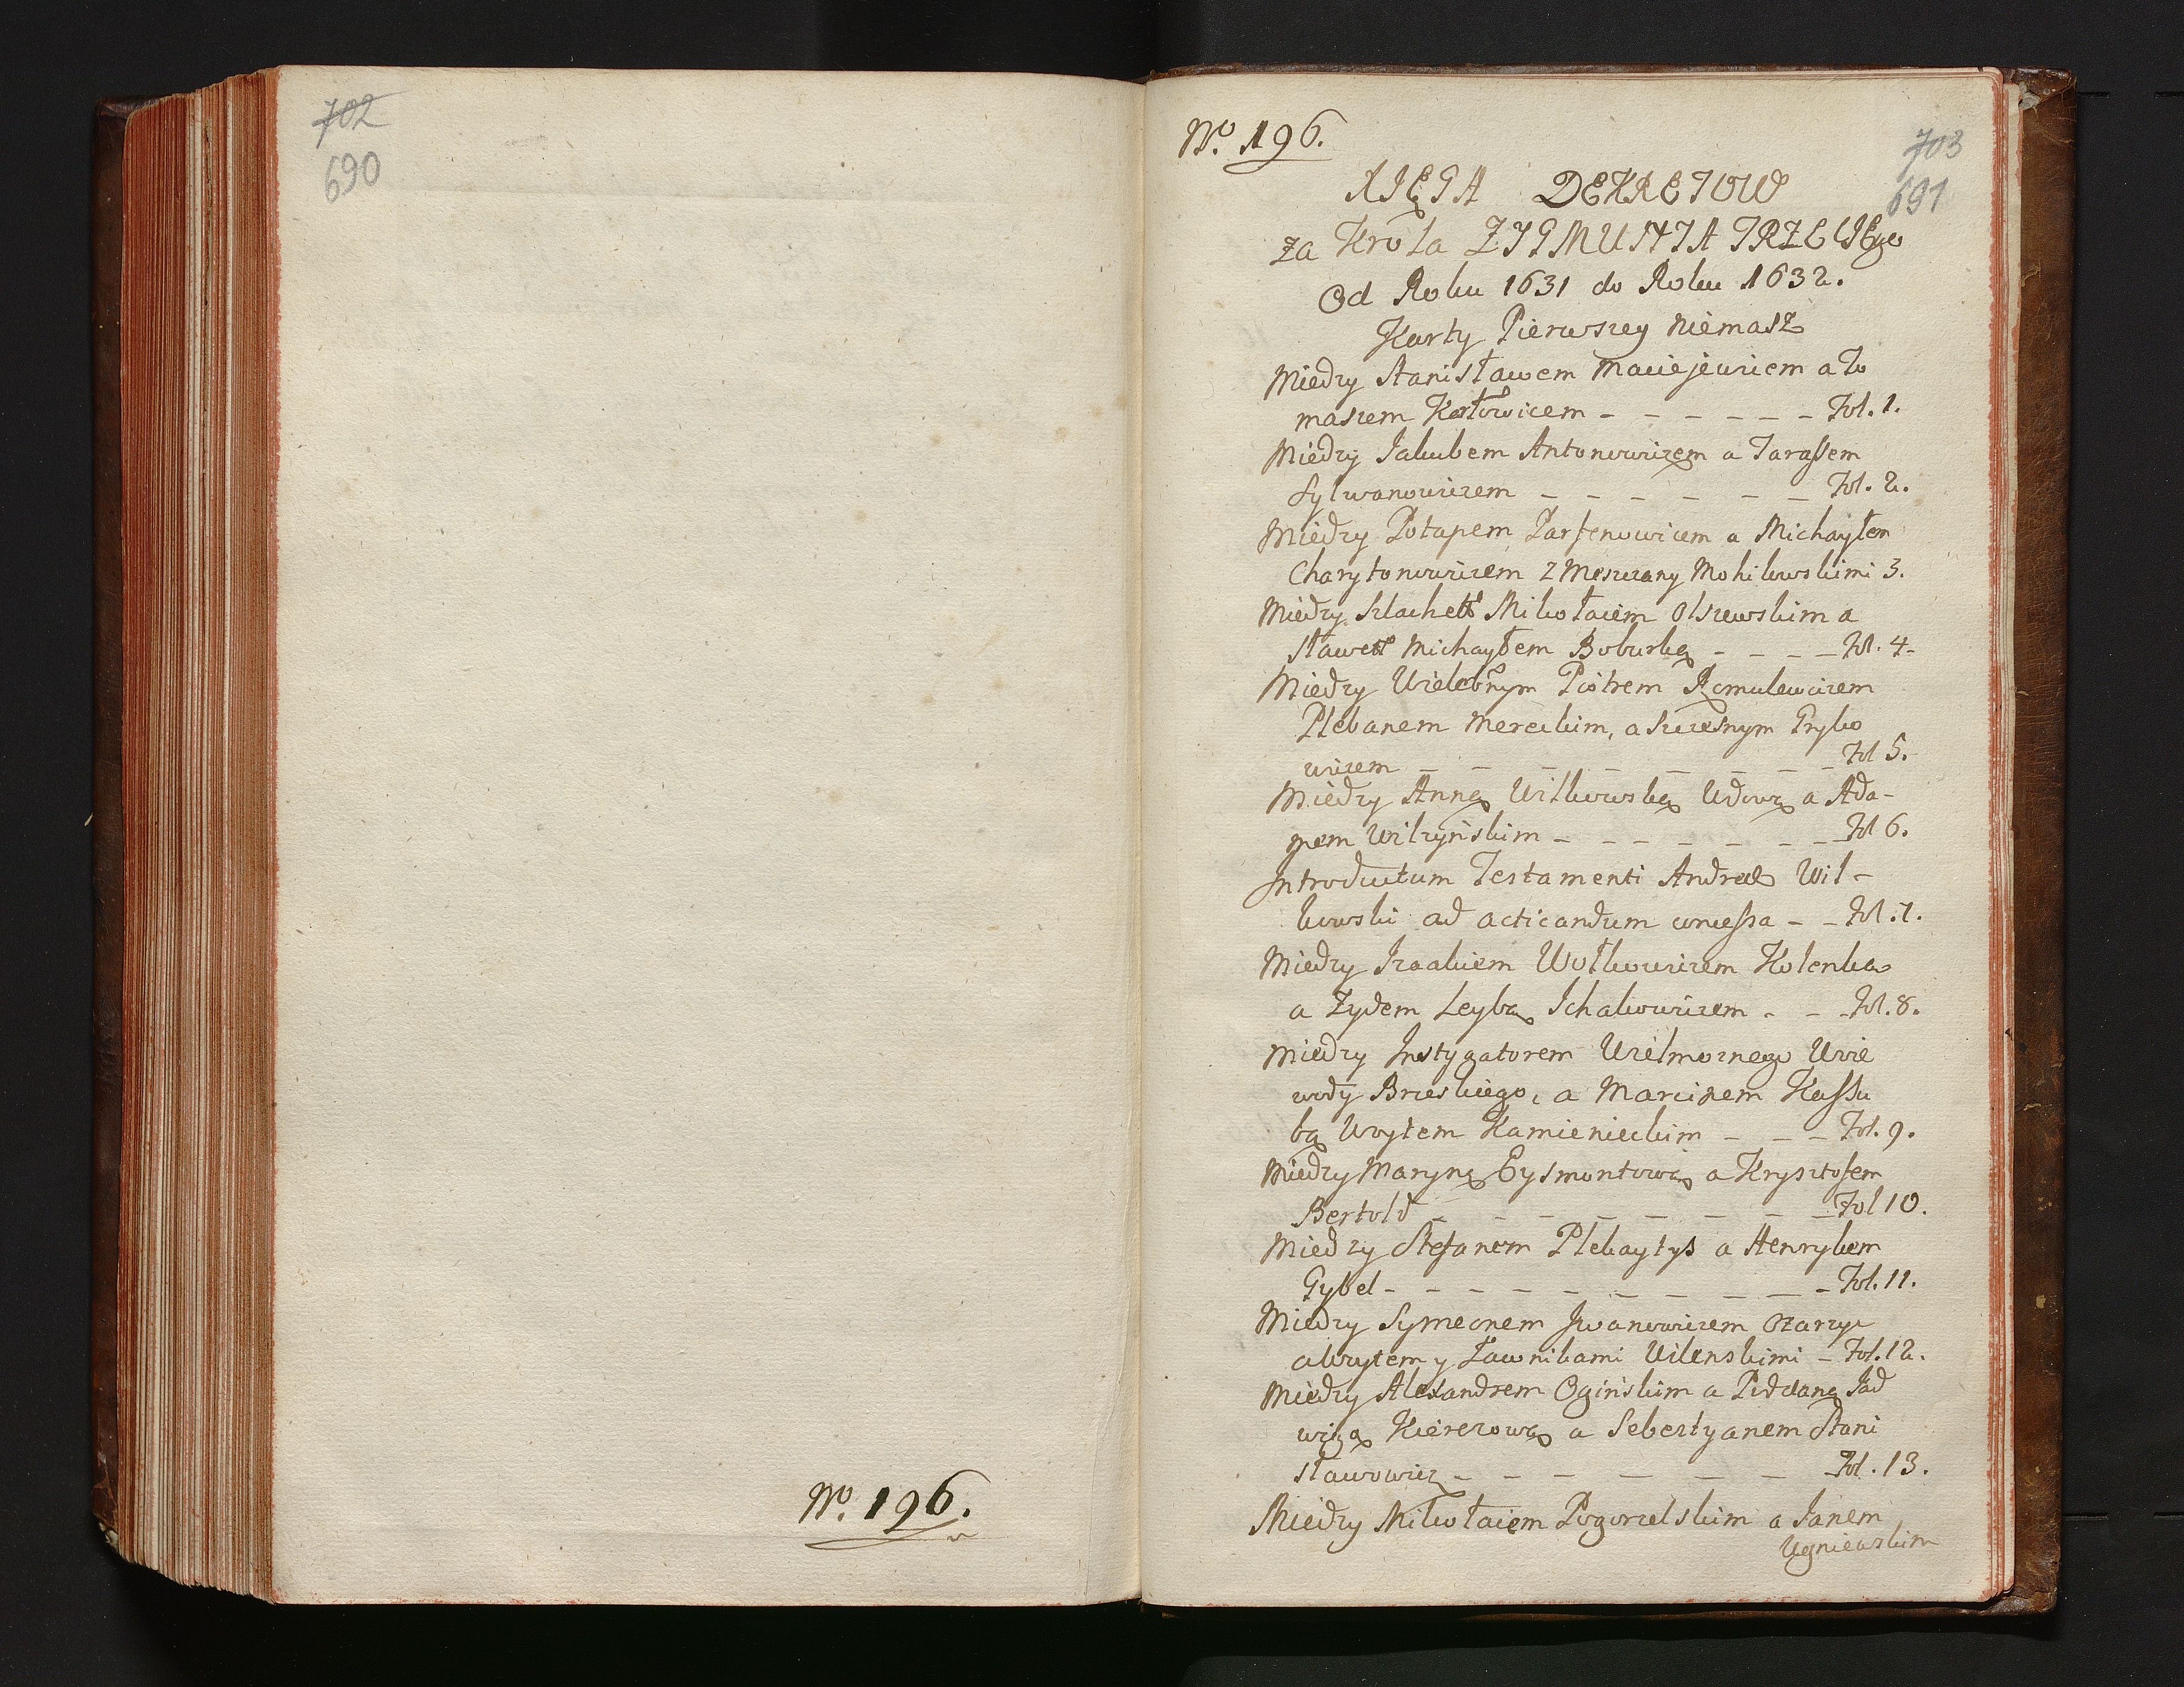 702
690
No. 196.
No. 196.
703
691
XIĘGA DEKRETOW
za Krola ZYGMUNTA TRZECIEgo
Od Roku 1631 do Roku 1632.
Karty Pierwszey niemasz
Miedzy Stanisławem Maciejewiczem a To
maszem Karłowiczem - - - - - - Fol. 1.
Miedzy Jakubem Antonowiczem a Tarassem
Sylwanowiczem - - - - - - - Fol. 2.
Miedzy Potapem Parfenowiczem a Michayłem
Charytonowiczem z Meszczany Mohilowskimi 3.
Miedzy Szlachett Mikołaiem Olszewskim a
Sławett Michayłem Boburką - - - - Fol. 4.
Miedzy Wielebnym Piotrem Romulewiczem
Plebanem Mereckim, a Szczesnym Grybo
wiczem - - - - - - - - - Fol 5.
Miedzy Anną Witkowską Wdową a Ada-
mem Wilczyńskim - - - - - - - Fol 6.
Introductum Testamenti Andreæ Wit-
kowski ad acticandum wniessa - - Fol. 7.
Miedzy Izaakiem Wołkowiczem Kolenka
a Zydem Leybą Ichakowiczem - - - Fol. 8.
Miedzy Instygatorem Wielmoznego Woie
wody Brzeskiego, a Marcinem Kassu
bą Woytem Kamienieckim - - - Fol. 9.
Miedzy Maryną Eysmontową a Krysztofem
Bertold - - - - - - - - - Fol 10.
Miedzy Stefanem Plekaytys a Henrykem
Gybel - - - - - - - - - - Fol. 11.
Miedzy Symeonem Iwanowiczem Ozarzyc
a Woytem y Ławnikami Wilenskimi - Fol. 12.
Miedzy Alexandrem Oginskim a Poddaną Jad
wigą Kierczową a Sebestyanem Stani
sławowicz - - - - - - - - Fol. 13.
Miedzy Mikołaiem Pogorzelskim a Janem
Ugniewskim